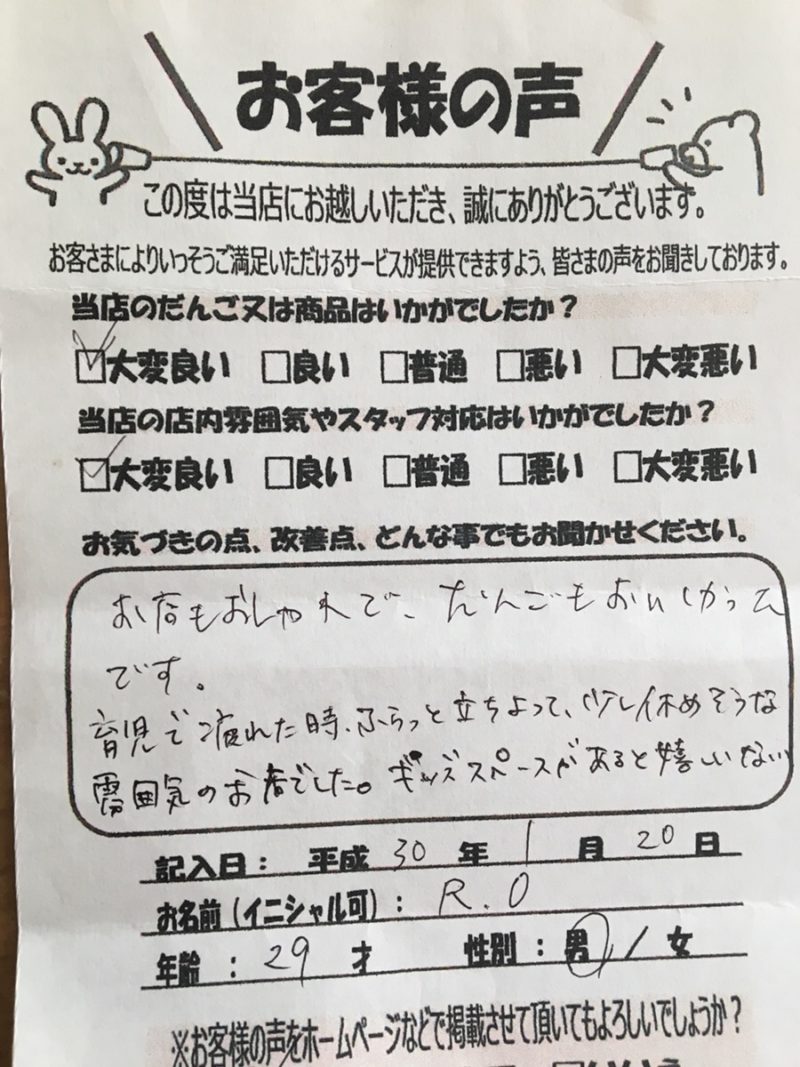 お客様の声
この度は当店にお越しいただき、誠にありがとうございます。
お客さまによりいっそうご満足いただけるサービスが提供できますよう、皆さまの声をお聞きしております。
当店のだんご又は商品はいかがでしたか？
☑大変良い □良い □普通 □悪い □大変悪い
当店の店内雰囲気やスタッフ対応はいかがでしたか？
☑大変良い □良い □普通 □悪い □大変悪い
お気づきの点、改善点、どんな事でもお聞かせください。
お店もおしゃれで、だんごもおいしかった
です。
育児で疲れた時、ふらっと立ちよって、少し休めそうな
雰囲気のお店でした。キッズスペースがあると嬉しいない
記入日： 平成 30 年 1 月 20 日
お名前（イニシャル可）： R.O
年齢 ： 29 才 性別 ： 男 / 女
※お客様の声をホームページなどで掲載させて頂いてもよろしいでしょうか？